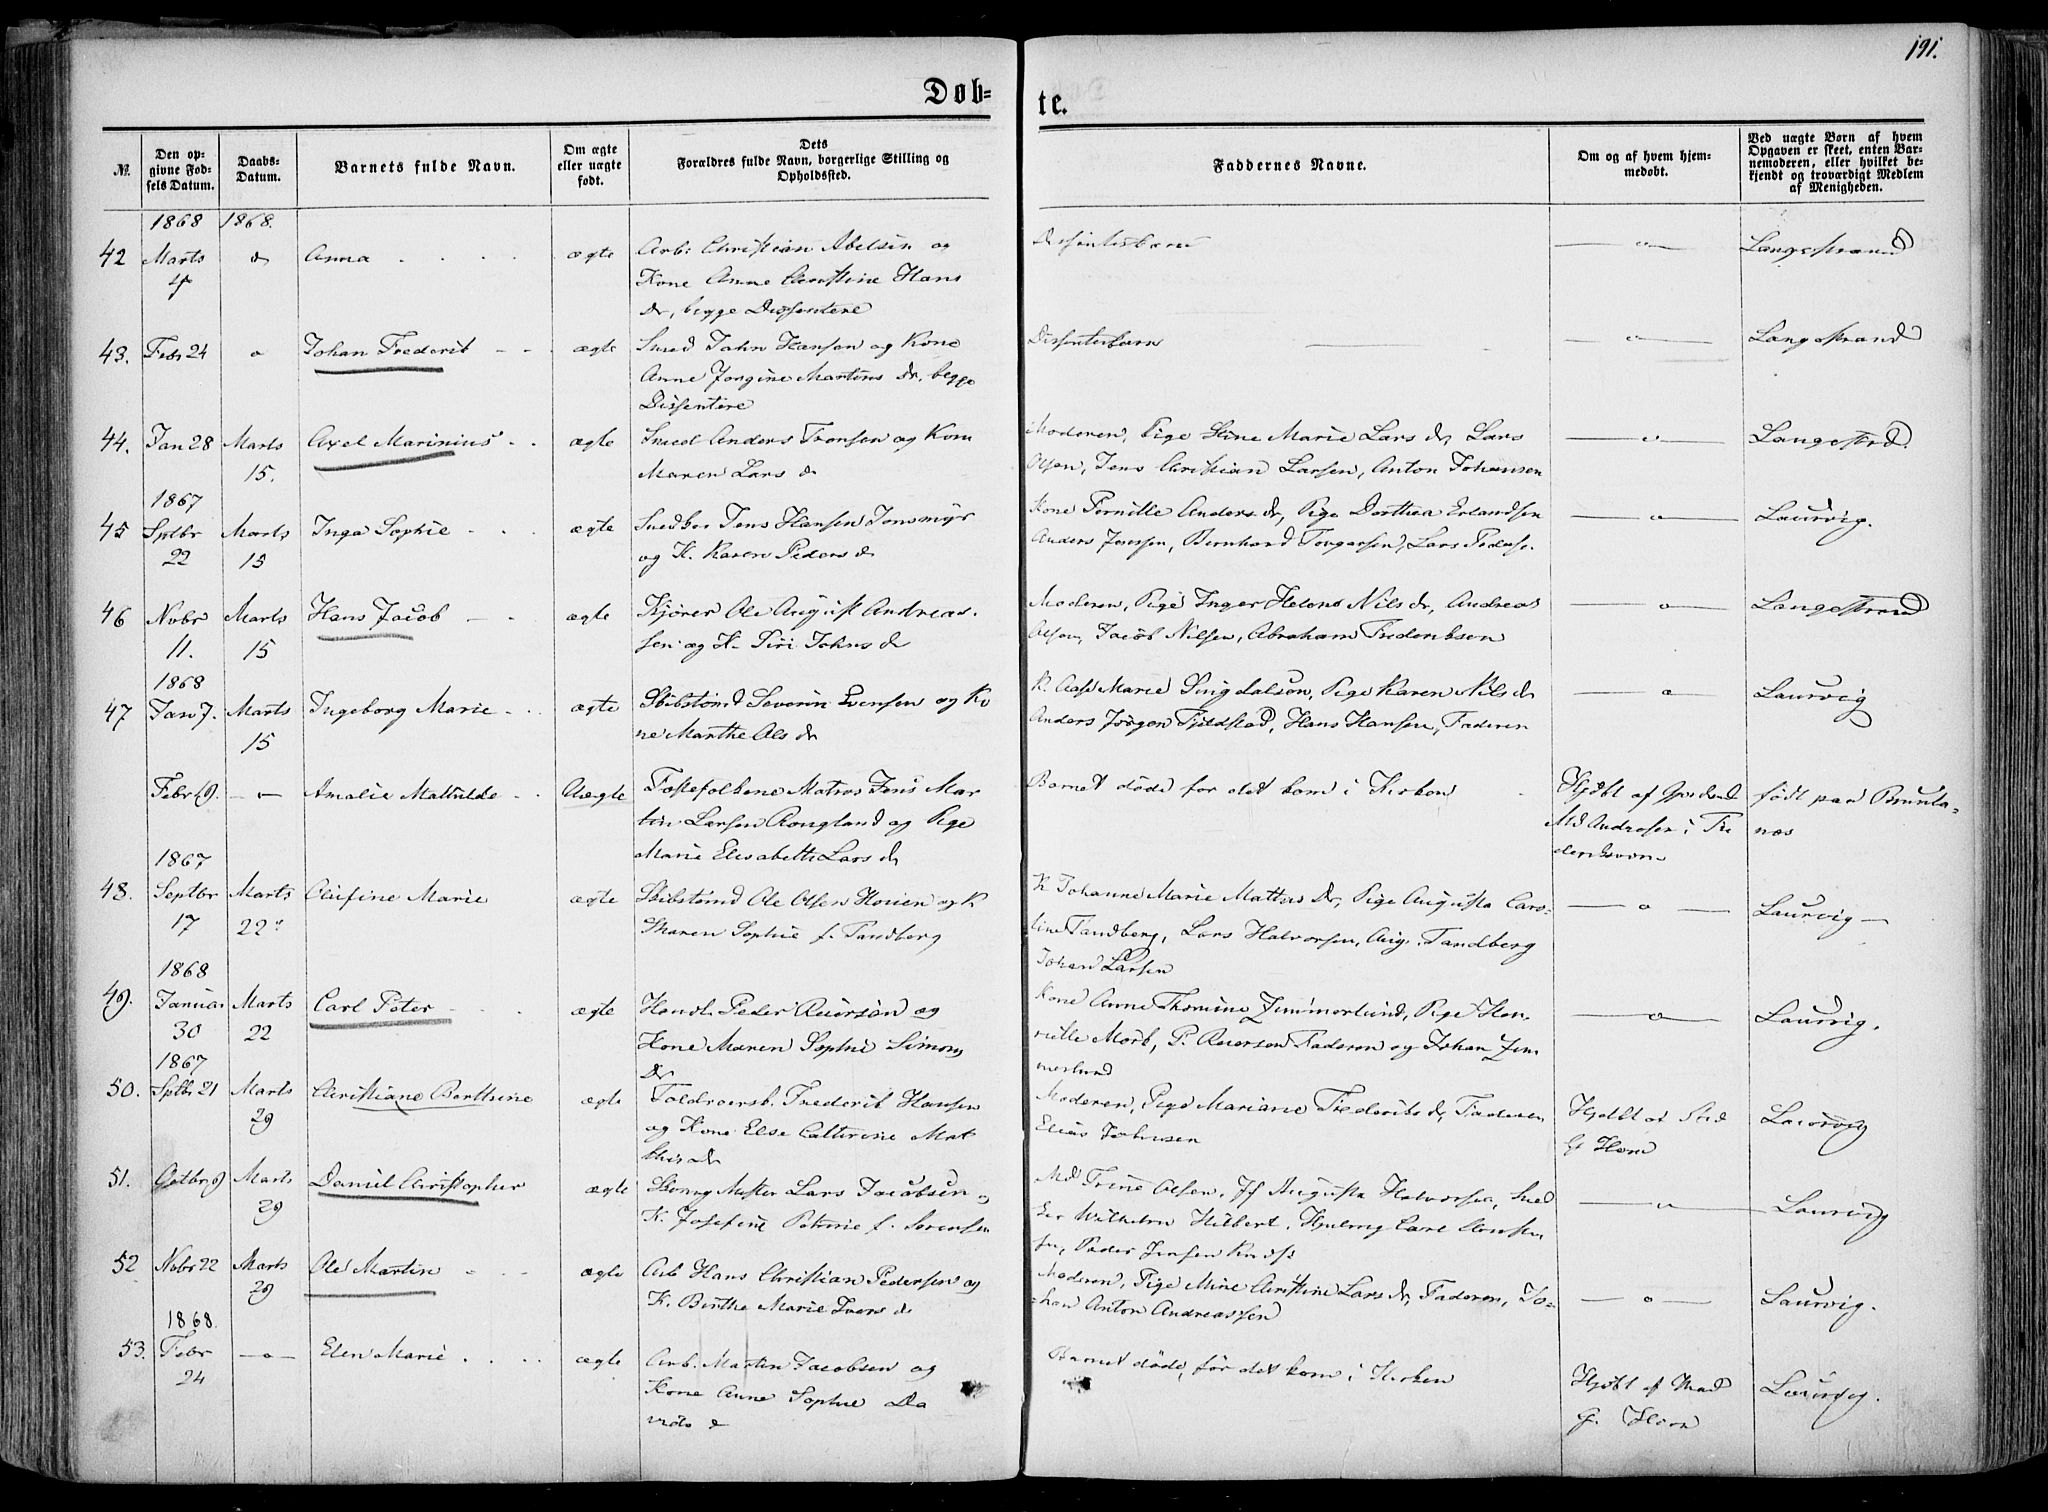 191.
Døb-
te.
№.
Den op-
givne Fød-
sels Datum.
Daabs-
Datum.
Barnets fulde Navn.
Om ægte
eller uægte
født.
Dets
Forældres fulde Navn, borgerlige Stilling og
Opholdssted.
Faddernes Navne.
Om og af hvem hjem-
medøbt.
Ved uægte Børn af hvem
Opgaven er skeet, enten Bar-
nemoderen, eller hvilket be-
kjendt og troværdigt Medlem
af Menigheden.
1868 1868.
42 Marts Anna ægte Arb: Christian Abelsen og Langestrand
4 Kone Anne Christine Hans
dr, begge Dissentere
43. Febr 24 Johan Frederik ægte Smed John Hansen og Kone Dissenterbarn Langestrand
Anne Jorgine Martins dr, begge
Dissentere
44. Jan 28 Marts Axel Marinius ægte Smed Anders Tronsen og Kone Moderen, Pige Stine Marie Lars dr, Lars Langestrd.
15. Maren Lars dr Olsen, Jens Christian Larsen, Anton Johansen
1867
45 Sptbr Marts Inga Sophie ægte Snedker Jens Hansen Jonsmyr Kone Pernille Anders dr, Pige Dorthea Erlandsen Laurvig.
22 15 og K. Karen Peders dr Anders Jensen, Bernhard Torgersen, Lars
46 Nvbr Marts Hans Jacob ægte Kjører Ole August Andreas- Moderen, Pige Inger Helene Nils dr, Andreas Langestrand
11. 15 sen og K. Siri Johns dr Olsen, Jacob Nilsen, Abraham Frederiksen
1868
47 Jan 7. Marts Ingeborg Marie ægte Skibstømd Severin Evensen og Ko K. Aase Marie Singdalsen, Pige Karen Nils dr Laurvig
15 ne Marthe Ols dr Anders Jørgen Fjeldstad, Hans Hansen, Faderen
Febr 19. Amalie Mathilde Uægte Fæstefolkene Matros Jens Mar Barnet døde før det kom i Kirken Hjdbt af født paa Brunla-
tin Larsen Rongland og Pige Md Andresen i Fre næs
Marie Elisabeth Lars dr deriksværn
1867
48. Septbr Marts Olufine Marie ægte Skibstømd Ole Olsen Hovien og K K Johanne Marie Mathis dr, Pige Augusta Caro- Laurvig
17 22 Maren Sophie f. Tandberg line Tandberg, Lars Halvorsen, Aug. Tandberg
Johan Larsen
1868
49. Januar Marts Carl Peter ægte Handl. Peder Reierson og Kone Anne Thomine Zimmerlund, Pige Hen- Laurvig.
30 22 Kone Maren Sophie Simons riette Mørk, P. Reierson Faderen og Johan Zim
dr merlund
1867
50. Sptbr 21 Marts Christiane Berthine ægte Toldroersk. Frederik Hansen Moderen, Pige Mariane Frederiks dr, Faderen Hjdbt af Laurvig
29 og Kone Else Cathrine Mat Elias Johnsen G. Horn
this dr
51. Octbr 9 Marts Daniel Christopher ægte Lars Jacobsen Md Trine Olsen, Jf Augusta Halvorsen, Sned Laurvig
29 K. Josefine Petrine f. Sørensen ker Wilhelm Hilbert, Carl Christen
sen, Peder Jensen
52 Nvbr 22 Marts Ole Martin ægte Arb Hans Christian Pedersen og Moderen, Pige Mine Christine Lars dr, Faderen, Jo- Laurvig.
29 K. Birthe Marie Ivers dr han Anton Andreassen
1868.
53. Febr Elen Marie ægte Arb. Martin Jacobsen og Barnet døde, før det kom i Kirken Hjdbt af Mad Laurvig.
24 Kone Anne Sophie Da G. Horn
vids dr